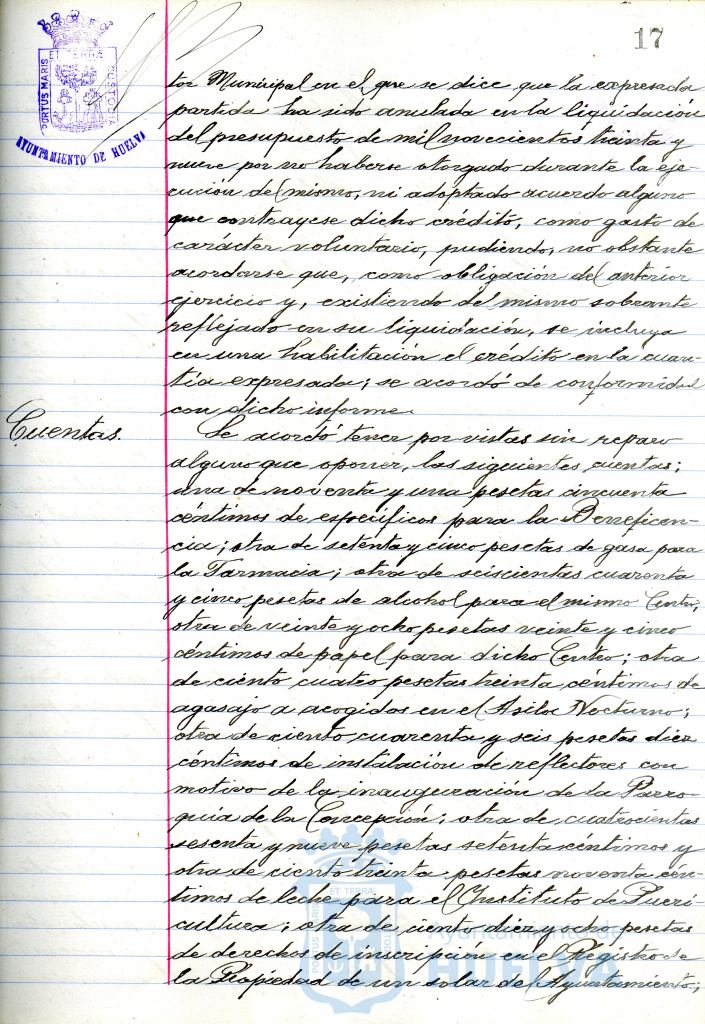 17
PORTUS MARIS ET TERRÆ CUSTODIA
AYUNTAMIENTO DE HUELVA
tor Municipal en el que se dice que la expresada
partida ha sido anulada en la liquidación
del presupuesto de mil novecientos treinta y
nueve por no haberse otorgado durante la eje-
cución del mismo, ni adoptado acuerdo alguno
que contrayese dicho crédito, como gasto de
carácter voluntario, pudiendo, no obstante
acordarse que, como obligación del anterior
ejercicio y, existiendo del mismo sobrante
reflejado en su liquidación, se incluya
en una habilitación el crédito en la cuan-
tía expresada; se acordó de conformidad
con dicho informe.
Cuentas.
Se acordó tener por vistas sin reparo
alguno que oponer, las siguientes cuentas;
una de noventa y una pesetas cincuenta
céntimos de específicos para la Beneficen-
cia; otra de setenta y cinco pesetas de gasa para
la Farmacia; otra de seiscientas cuarenta
y cinco pesetas de alcohol para el mismo Centro,
otra de veinte y ocho pesetas veinte y cinco
céntimos de papel para dicho Centro; otra
de ciento cuatro pesetas treinta céntimos de
agasajo a acogidos en el Asilo Nocturno;
otra de ciento cuarenta y seis pesetas diez
céntimos de instalación de reflectores con
motivo de la inauguración de la Parro-
quia de la Concepción; otra de cuatrocientas
sesenta y nueve pesetas setenta céntimos y
otra de ciento treinta pesetas noventa cén-
timos de leche para el Instituto de Pueri-
cultura; otra de ciento diez y ocho pesetas
de derechos de inscripción en el Registro de
la Propiedad de un solar del Ayuntamiento;
PORTUS MARIS ET TERRÆ CUSTODIA
Ayuntamiento de
HUELVA